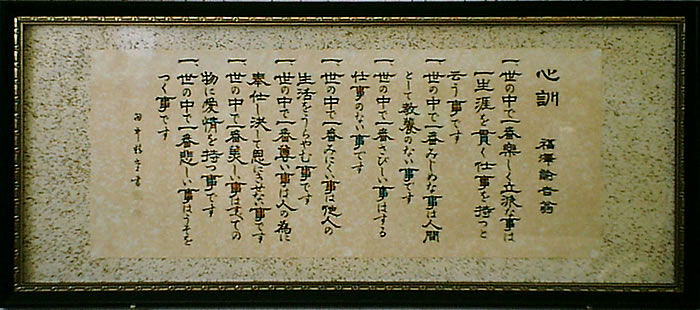 心訓
福澤諭吉翁
一、世の中で一番楽しく立派な事は
一生涯を貫く仕事を持つと
云う事です
一、世の中で一番みじめな事は人間
として教養のない事です
一、世の中で一番さびしい事はする
仕事のない事です
一、世の中で一番みにくい事は他人の
生活をうらやむ事です
一、世の中で一番尊い事は人の為に
奉仕し決して恩にきせない事です
一、世の中で一番美しい事はすべての
物に愛情を持つ事です
一、世の中で一番悲しい事はうそを
つく事です